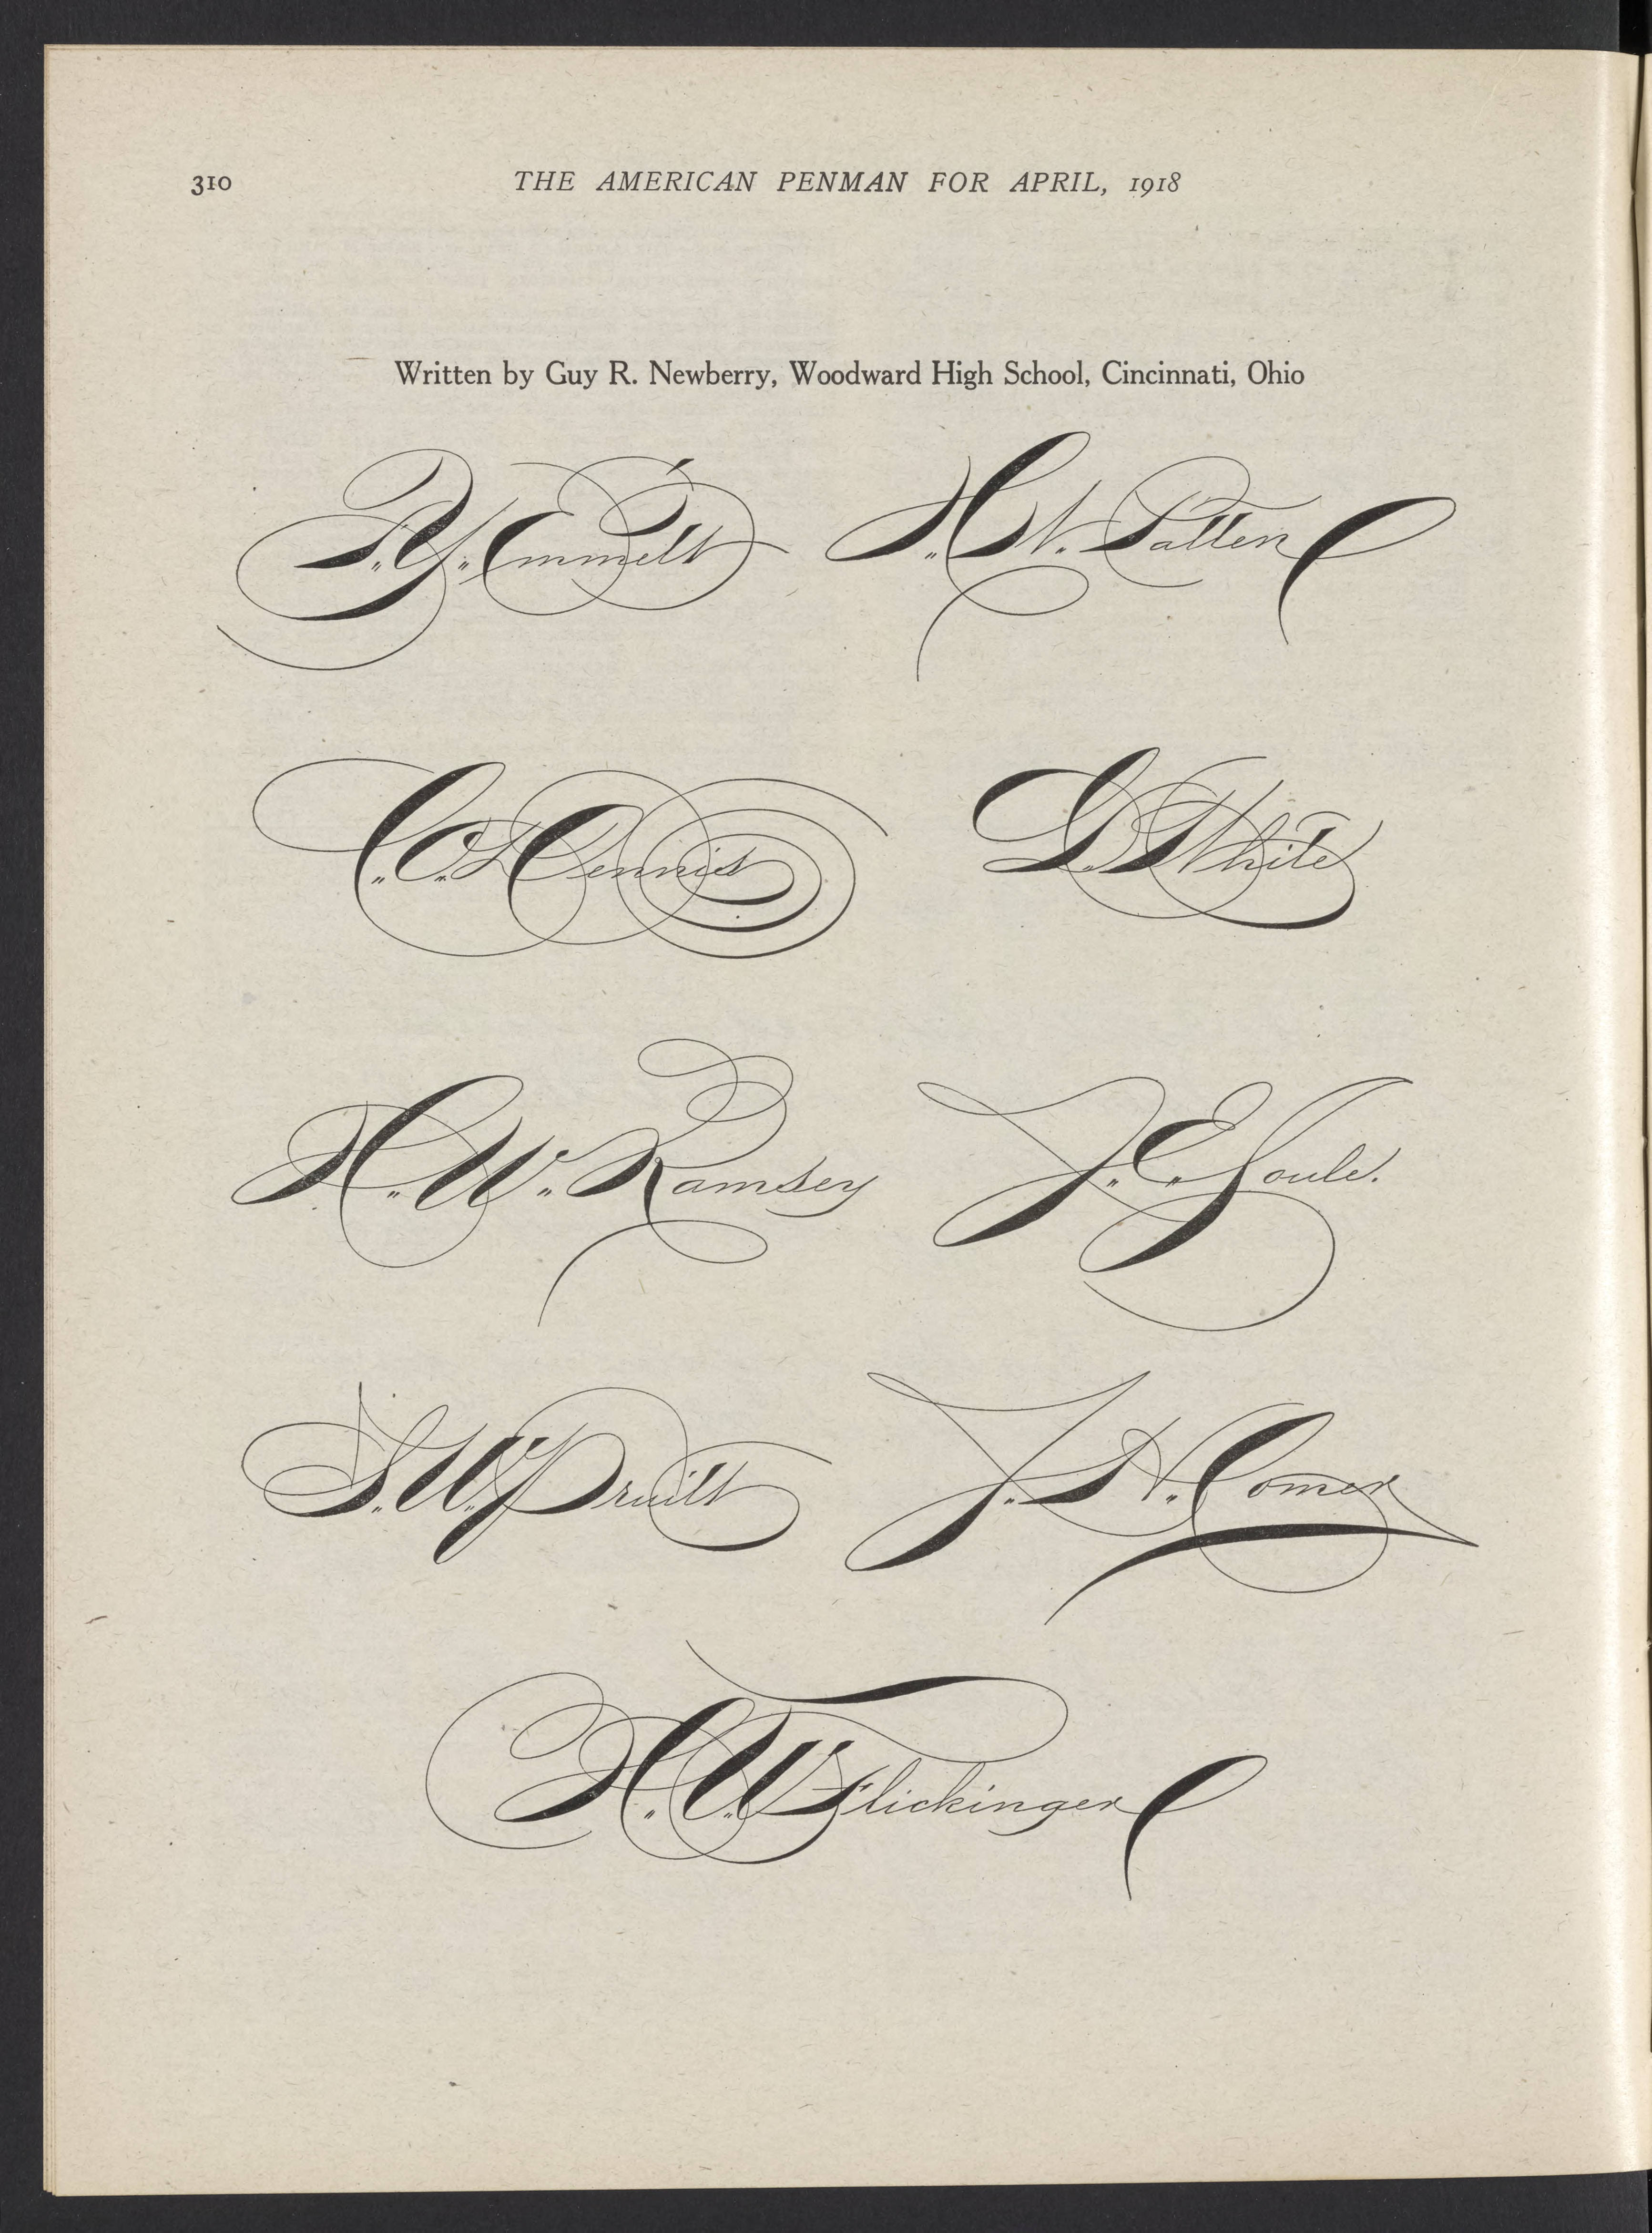 310 THE AMERICAN PENMAN FOR APRIL, 1918
Written by Guy R. Newberry, Woodward High School, Cincinnati, Ohio
Emmett H. N. Patten
C. C. Dennis White
H. W. Ramsey J. E. Soule.
S. W. Pruitt J. A. Comer
H. W. Flickinger